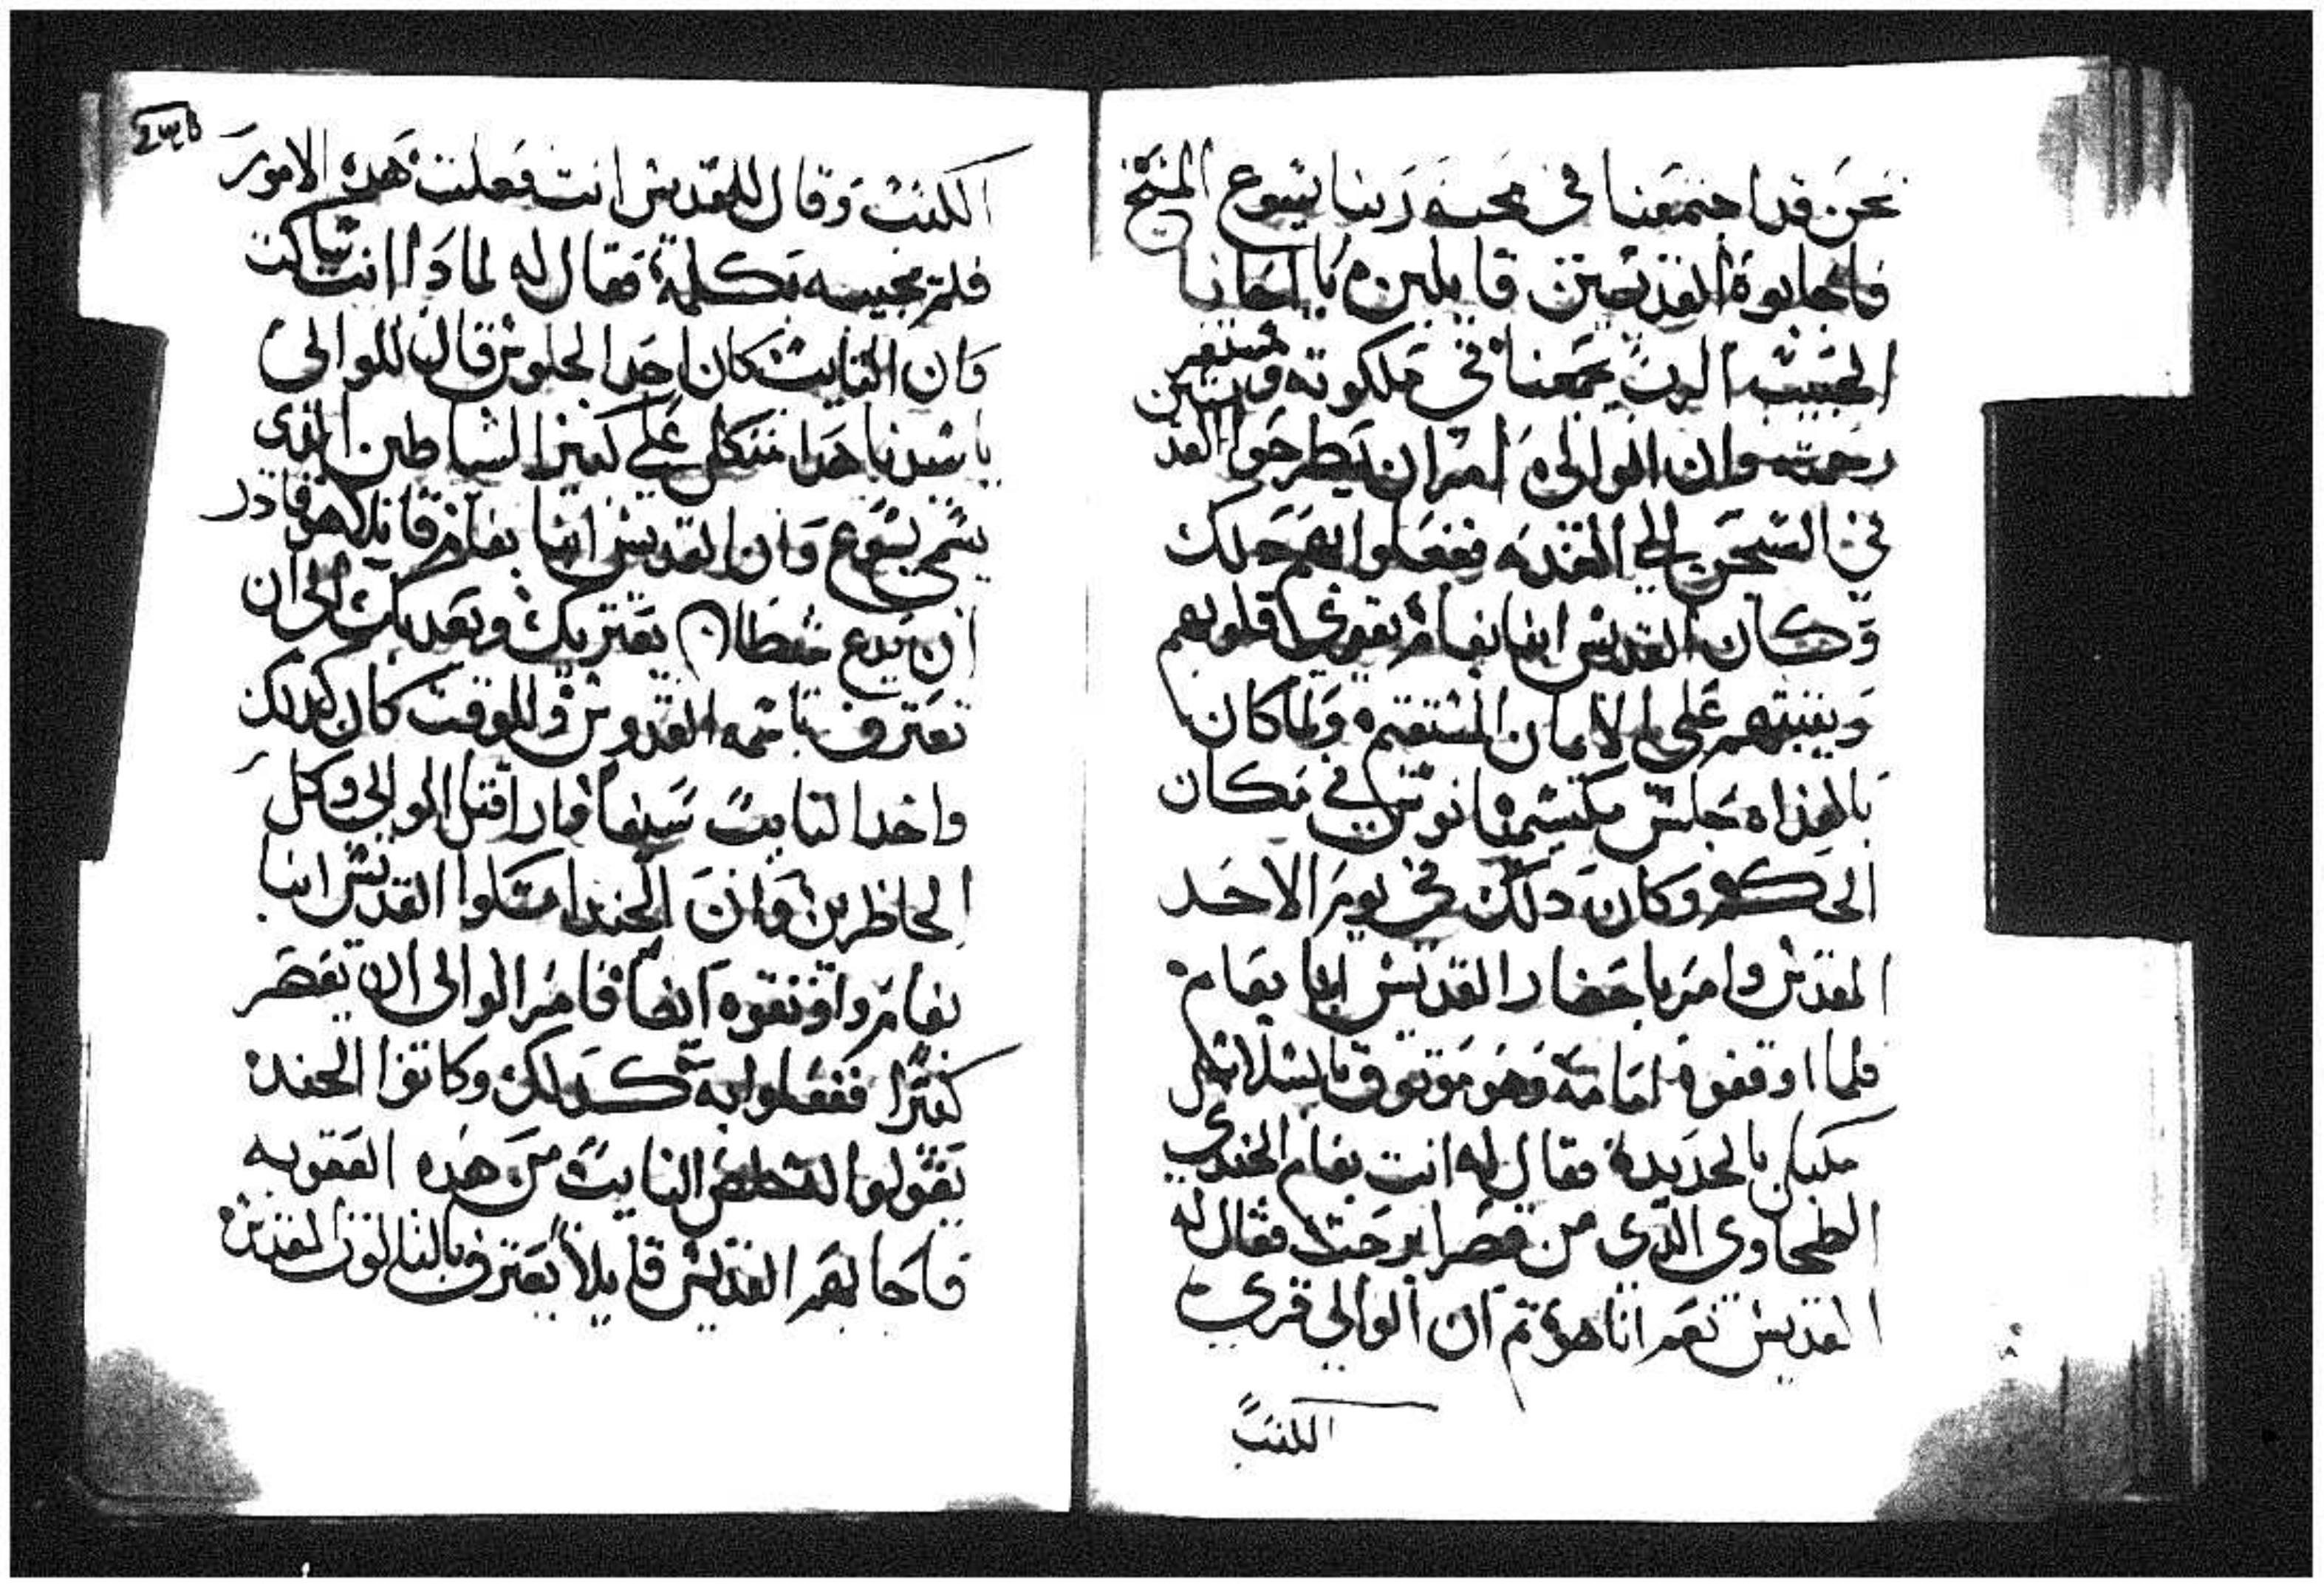 نحن قد اجتمعنا في محبه ربنا يسوع المسيح
فاجابوه القديسين قايلين يا اخانا
الحبيب الرب يجمعنا في ملكوته
رحمته وان الوالي امر ان يطرحوا القد
في السجن الي الغد ففعلوا بهم كدلك
وكان القديس ابنا بفام يقوي قلوبهم
ويثبتهم علي الامان المستقيم ولما كان
بالغداه جلس مكسيميانوس في مكان
الحكم وكان دلك في يوم الاحد
المقدس وامر باحضار القديس ابنا بفام
فلما اوقفوه امامه وهو موتوق بالسلاسل
مكبل بالحديد فقال له انت بفام الجندي
الطحاوي الذي من قصر ابرحت فقال له
القديس نعم انا هو تم ان الوالي قري
الكتب
الكتب وقال للقديس انت فعلت هده الامور
فلم يجيبه بكلمة فقال له لمادا انت ساكت
وان التايب كان احد الجلوس قال للوالي
يا سيدنا هدا متكل علي كبير الشياطين الذي
يسمي يسوع وان القديس ابنا بفام قايلا هو قادر
ان يدع شيطان يعتريك ويعديك الي ان
تعترف باسمه القدوس وللوقت كان كدلك
واخد التايب سيفا واراد قتل الوالي وكل
الحاظرين وان الجند امسكوا القديس ابنا
بفام واوتقوه ايضا فامر الوالي ان يعصر
كتيرا ففعلوا به كدلك وكانوا الجند
يقولوا التايب من هده العقوبه
فاجابهم القديس قايلا يعترف بالتالوت المقدس